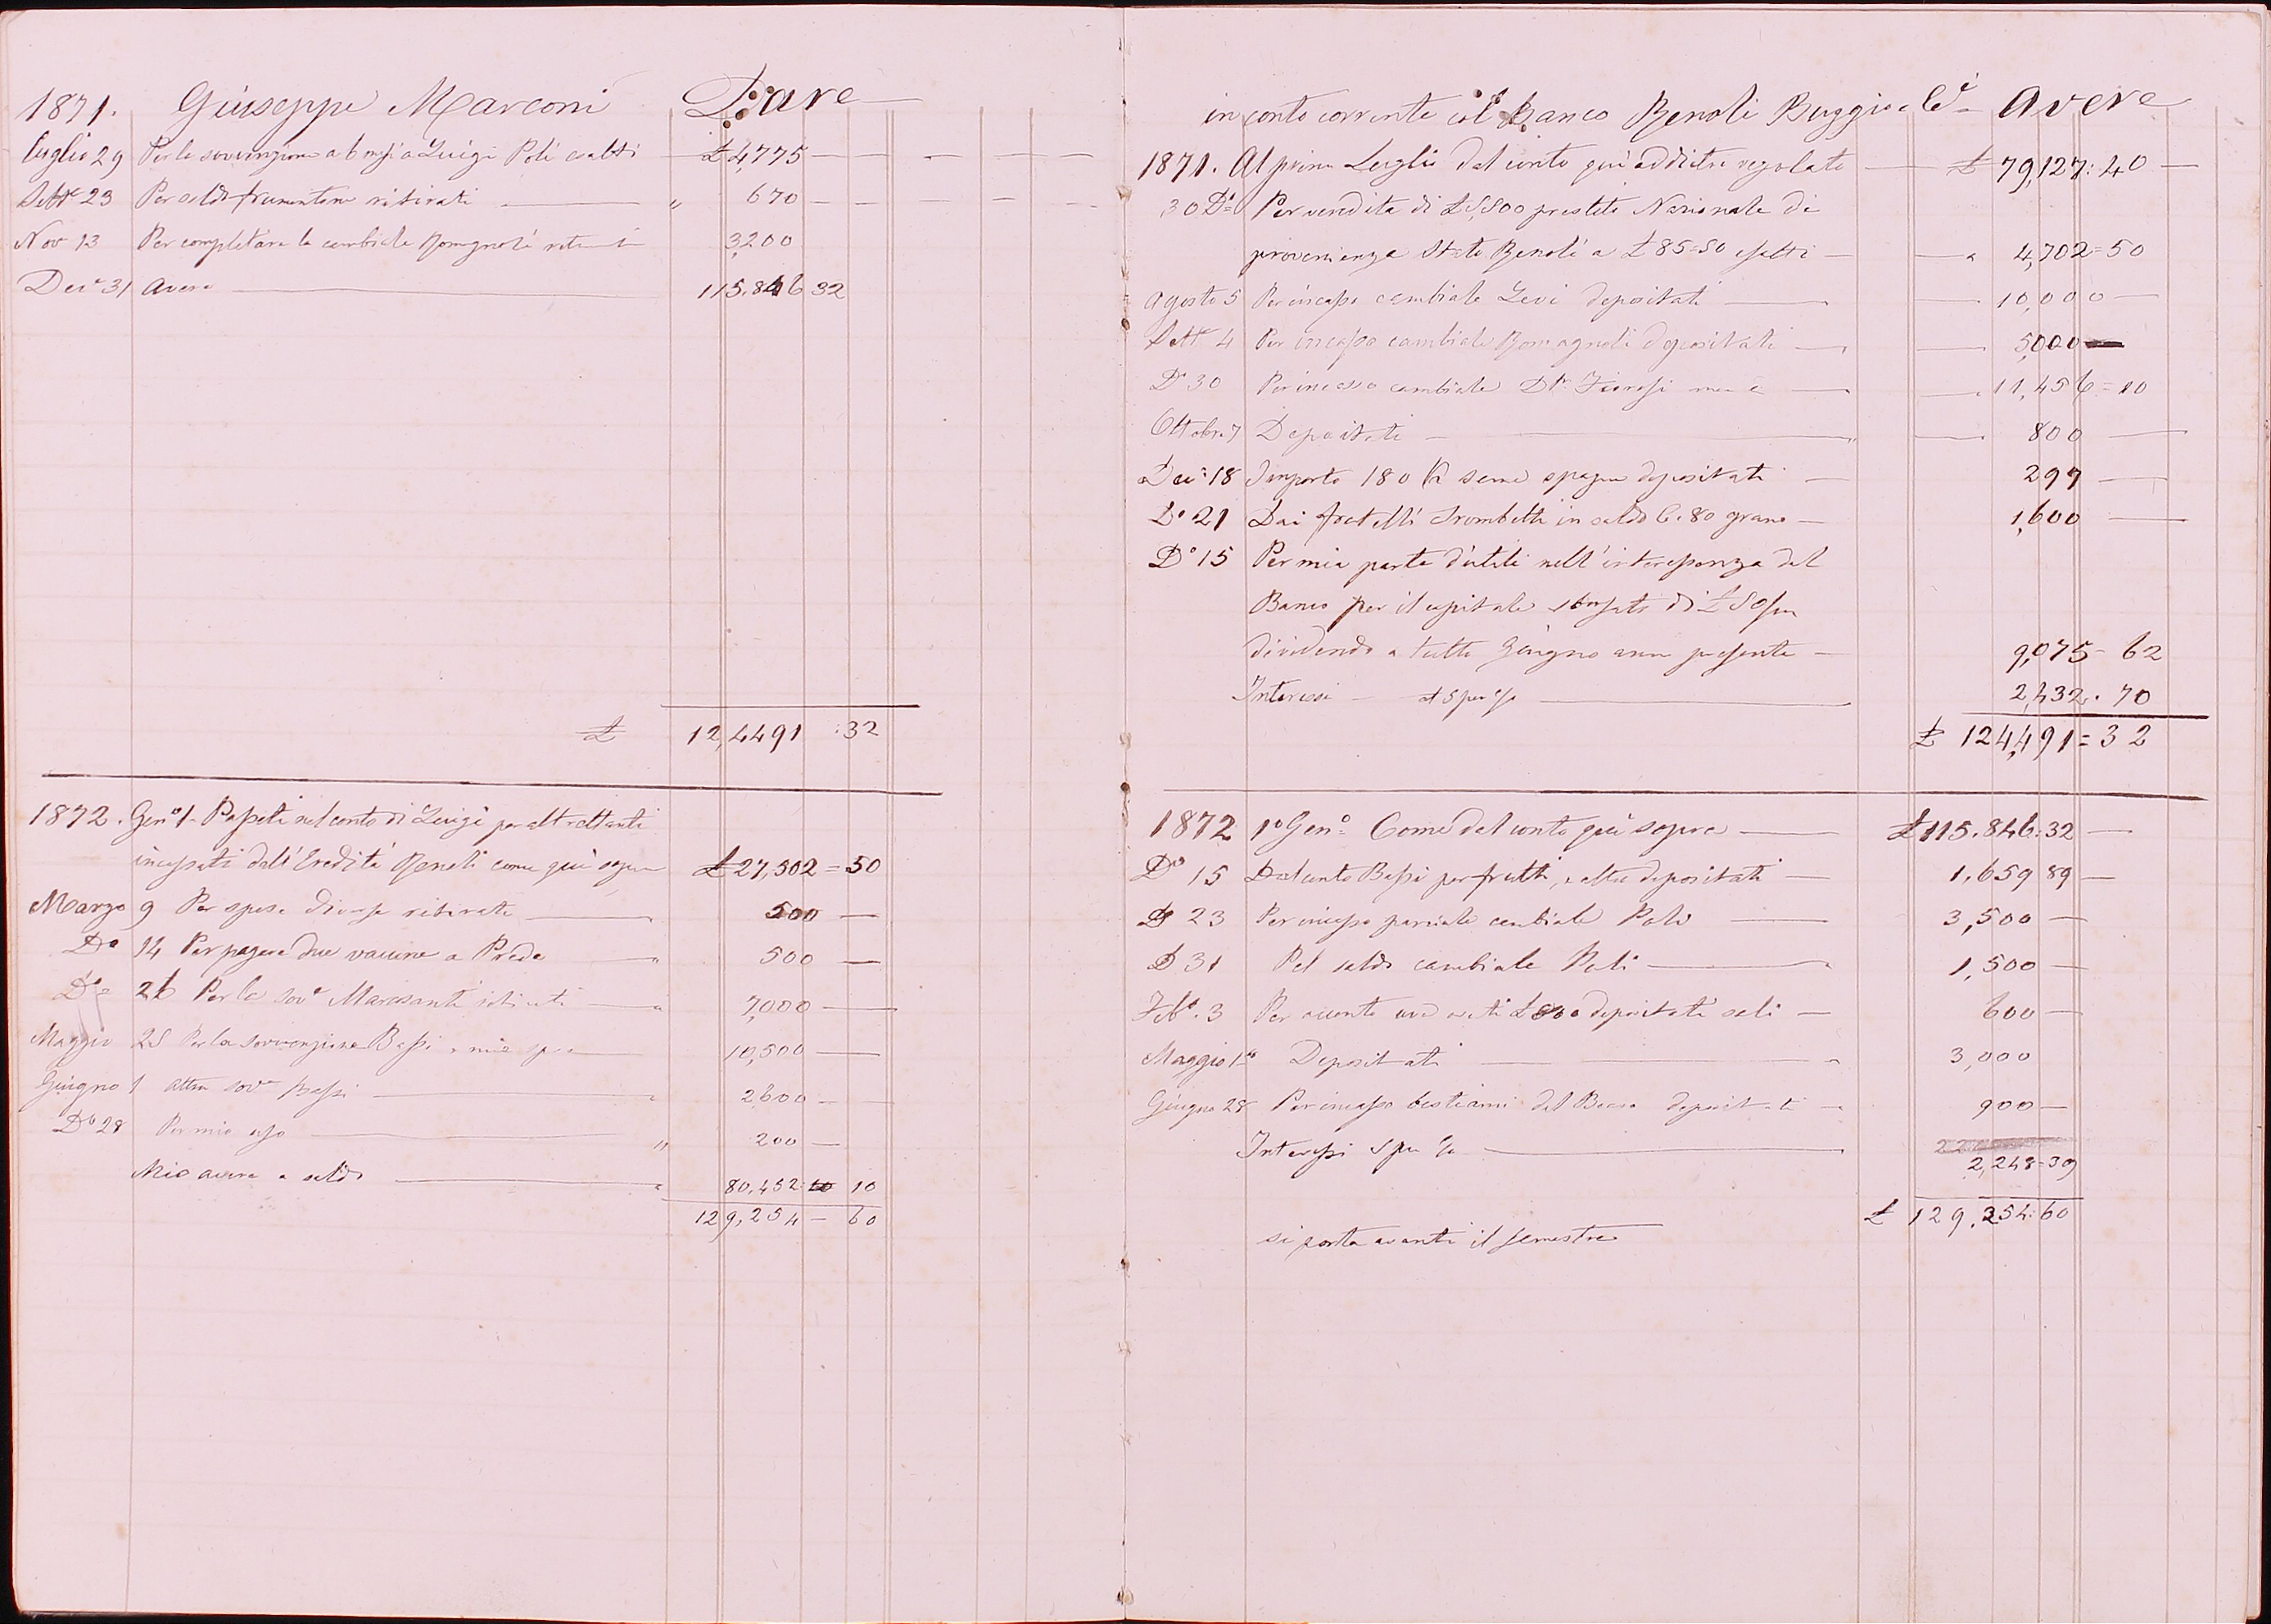 1871. Giuseppe Marconi Dare
Luglio 29 Per la sovvenzione a 6 mesi a Luigi Poli esatti £ 4,775
Sette 23 Per saldo frumentone ritirati " 670
Nov 13 Per completare la cambiale Romagnoli 3,200
Dece 31 Avere 115.846 32
£ 12,4491 :32
1872. Geno 1 Passati nel conto di Luigi per altrettanti
incassati dall'Eredità Renoli come qui £ 27,502=50
Marzo 9 Per spese diverse ritirate 500
Do 14 Per pagare due vaccine a Preda " 500
Do 26 Per la sove Marcsanti " 7,000
Maggio 25 Per la sovvenzione Bassi 10,500
Giugno 1 altra sovne Bassi 2600
Do 28 Per mio uso " 200
Mio avere a saldo 80,452 10
129,254 - 60
in conto corrente col Banco Renoli Buggio e Ci Avere
1871. Al primo Luglio dal conto qui addietro regolato £ 79,127:40
30 Do Per vendita di £5,500 prestito Nazionale di
provenienza Renoli a £85=50 esatti 4,702=50
Agosto 5 Per incasso cambiale Levi depositati 10,000
Sette 4 Per incasso cambiale Romagnoli depositati 5,000
Do 30 Per incasso cambiale Dr 11,456=10
Ottobre 7 Depositati 800
Dece 18 Importo 180 seme spagna depositati 297
Do 21 Dai fratelli Trombetti in saldo C. 80 grano 1,600
Do 15 Per mia parte d'utili nell'interessenza del
Banco per il capitale di £ 50
dividendo a tutto Giugno anno presente 9,075 - 62
Interessi al 5 per % 2,432. 70
£ 124,491=32
1872 1o Geno Come dal conto qui sopra £115.846:32
Do 15 Dal conto Bassi per frutti, e altro depositati 1.659 89
D 23 Per incasso parziale cambiale Poli 3,500
D 31 Pel saldo cambiale Poli 1,500
Febo. 3 Per acconto depositati soli 600
Maggio 1o Depositati 3,000
Giugno 28 Per incasso bestiami del depositati 900
Interessi 5 per % 2,248=39
£ 129,254:60
si porta avanti il semestre